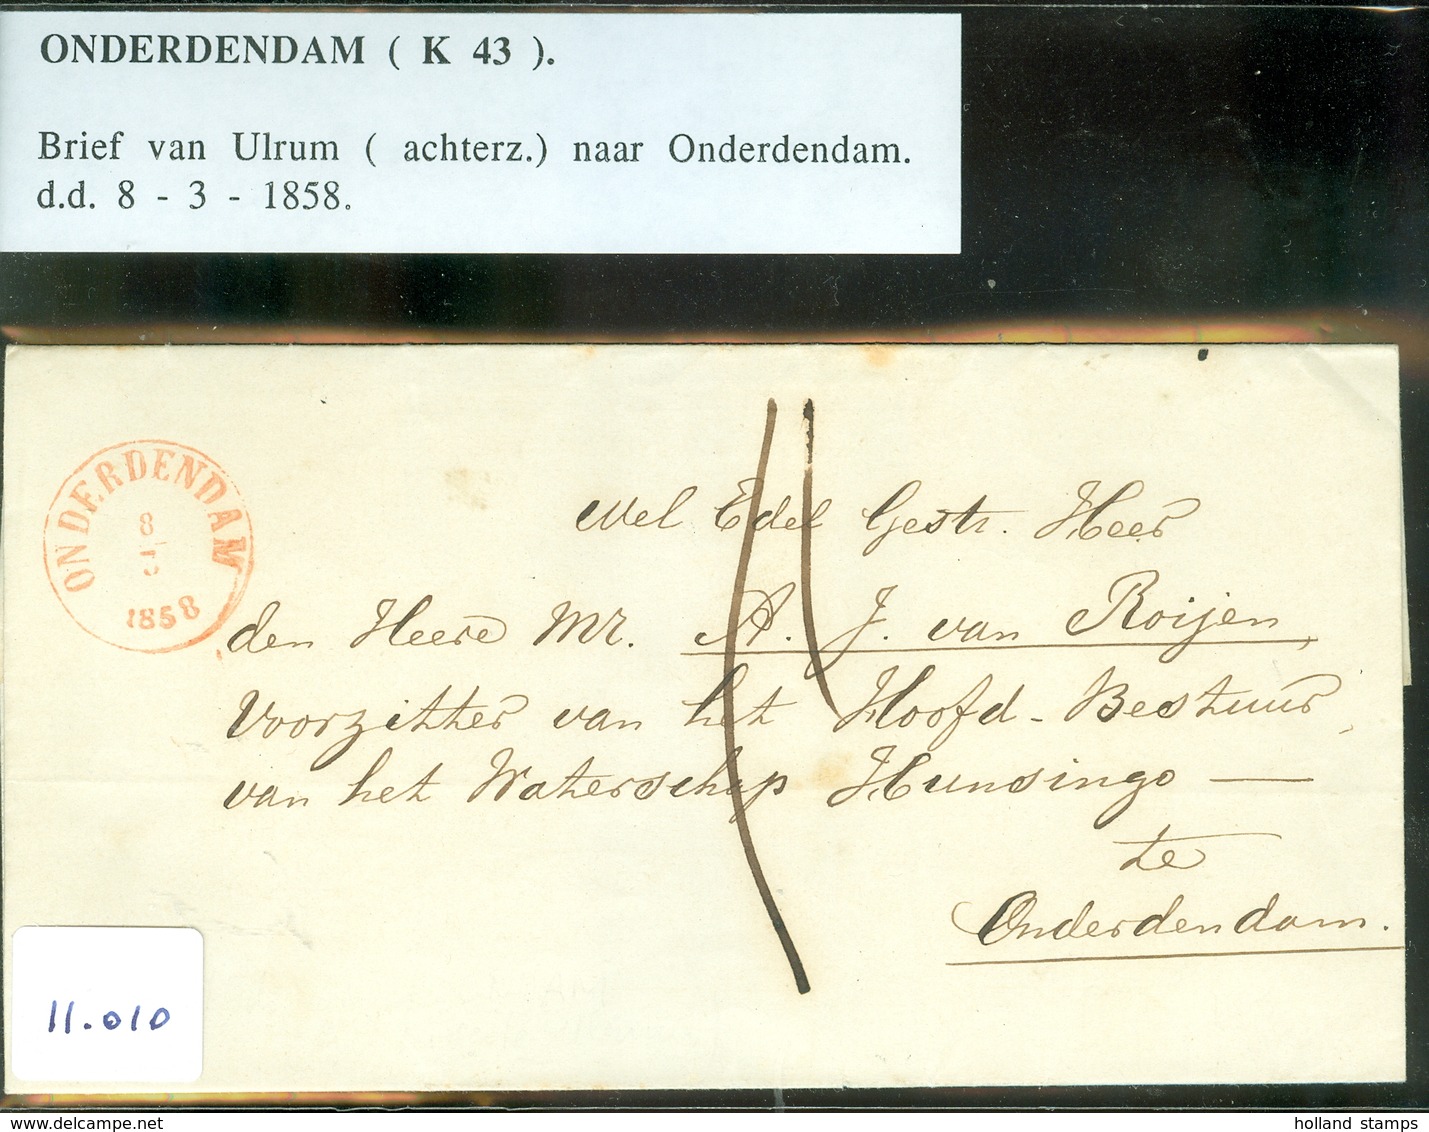 ONDERDENDAM ( K 43 ).
Brief van Ulrum ( achterz.) naar Onderdendam.
d.d. 8 - 3 - 1858.
ONDERDENDAM
8
3
1858
Wel Edel Gestr. Heer
den Heere Mr. A. J. van Roijen,
Voorzitter van het Hoofd-Bestuur
van het Waterschap Hunsingo —
te
Onderdendam.
11.010
www.delcampe.net
holland stamps